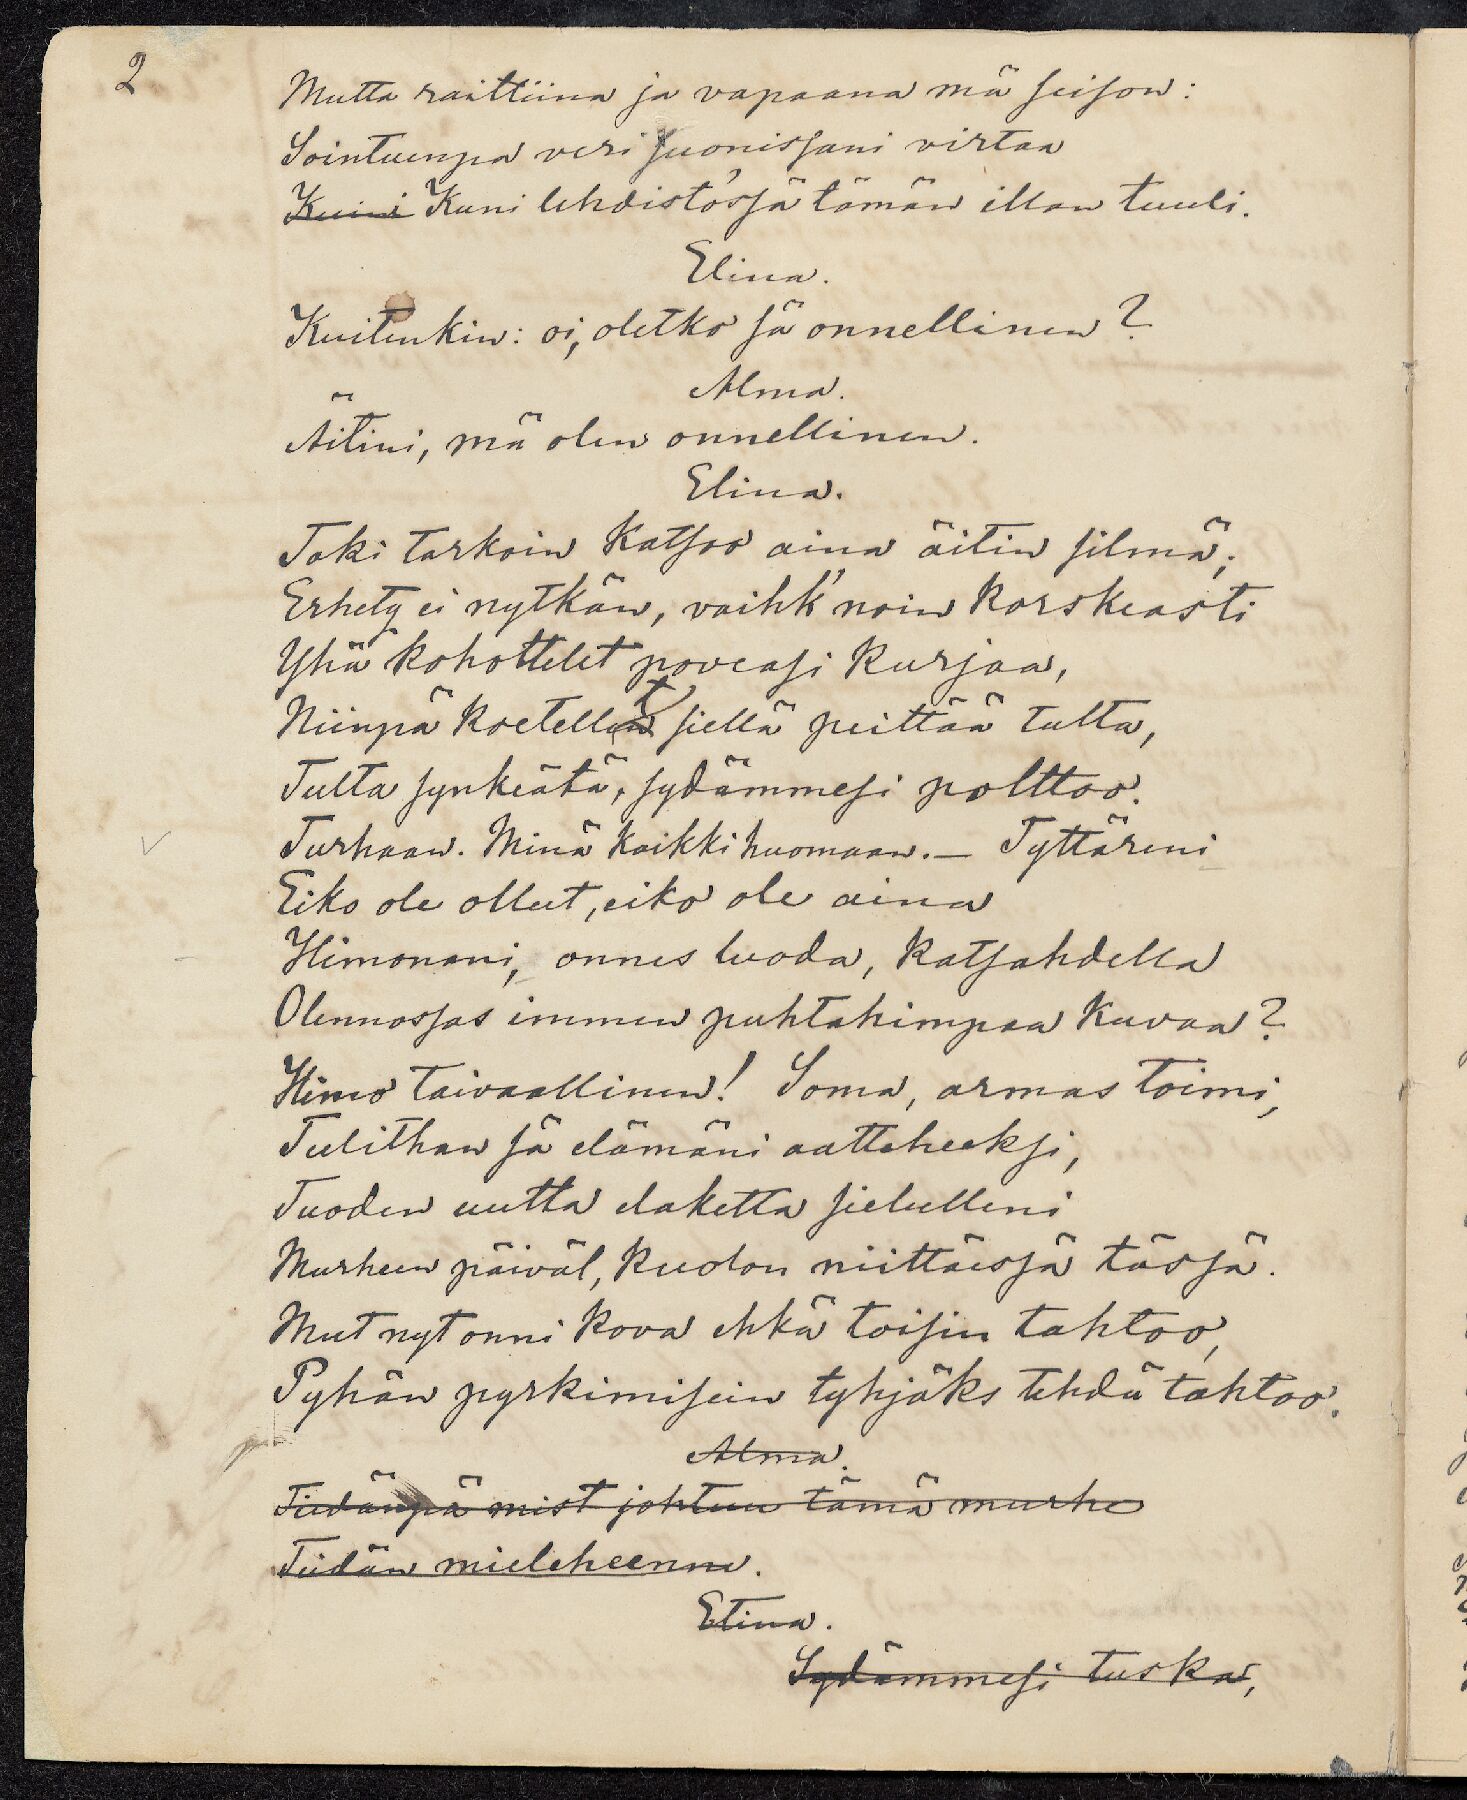 2
Mutta raittiina ja vapaana mä seison:
Sointuenpa veri suonissani virtaa
Kuini Kuni lehdistössä tämän illan tuuli.
Elina.
Kuitenkin: oi, oletko sä onnellinen?
Alma.
Äitini, mä olen onnellinen.
Elina.
Toki tarkoin katsoo aina äitin silmä;
Erhety ei nytkän, vaihk' noin korskeasti
Yhä kohottelet poveasi kurjaa,
Niinpä koetellet siellä peittää tulta,
Tulta synkeätä, sydämmesi polttoo.
Turhaan. Minä kaikki huomaan. — Tyttäreni
Eiko ole ollut, eiko ole aina
Himonani, onnes luoda, katsahdella
Olennossas immen puhtahimpaa kuvaa?
Himo taivaallinen! Soma, armas toimi,
Tulithan sä elämäni aatteheeksi,
Tuoden uutta elaketta sielulleni
Murheen päiväl, kuolon niittäessä tässä.
Mut nyt onni kova ehkä toisin tahtoo,
Pyhän pyrkimisein tyhjäks tehdä tahtoo.
Alma.
Tiedänpä mist johtuu tämä murhe
Teidän mieleheenne.
Elina.
Sydämmesi tuska,